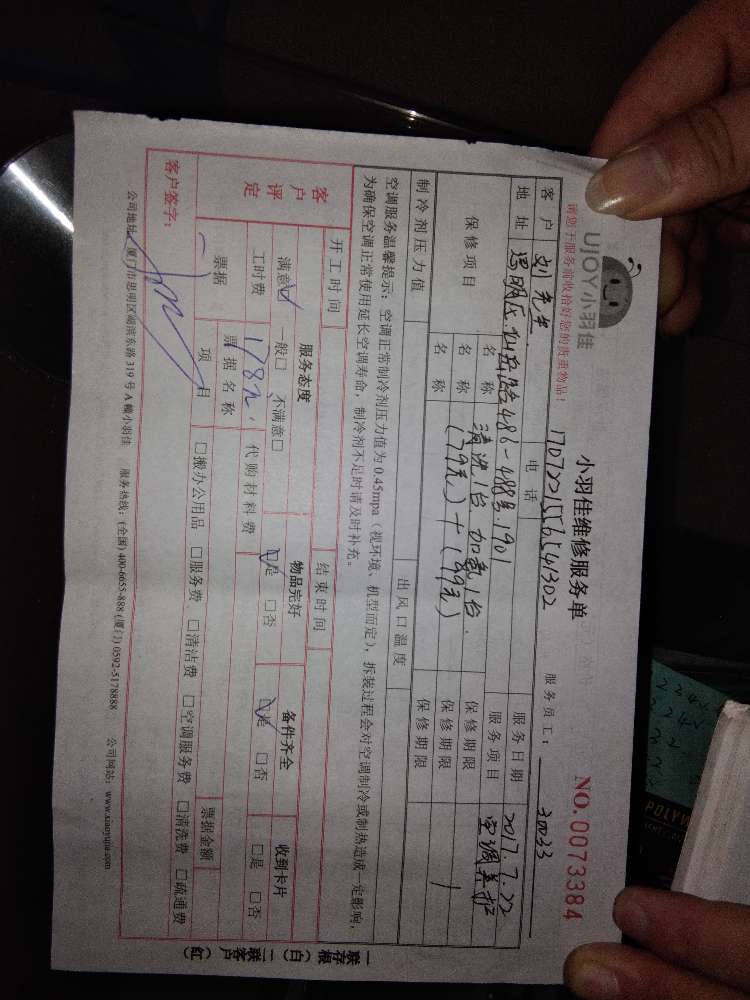 UJOY小羽佳
小羽佳维修服务单
NO. 0073384
请您于服务前收拾好您的贵重物品!
1707221556541302
服务员工: 30033
客户 刘先生 电话 服务日期 2017.7.22
地址 思明区仙岳路486-488号.1901 服务项目 空调养护
保修项目 名称 清洗1台.加氨1台. 保修期限
名称 (79元)+(99元) 保修期限
名称 保修期限
制冷剂压力值 出风口温度
空调服务温馨提示:空调正常制冷剂压力值为0.45mpa(视环境、机型而定),拆装过程会对空调制冷或制热造成一定影响,
为确保空调正常使用延长空调寿命,制冷剂不足时请及时补充。
开工时间 结束时间
客户评定 服务态度 物品完好 备件齐全 收到卡片
满意☑ 一般□ 不满意□ ☑是 □否 ☑是 □否 □是 □否
工时费 178元. 代购材料费
票据 票据名称 票据金额
项目 □搬办公用品 □服务费 □清洁费 □空调服务费 □清洗费 □疏通费
客户签字:
公司地址:厦门市思明区湖滨东路319号A幢小羽佳 服务热线:(全国) 400-6655-888 (厦门) 0592-5178888 公司网站:www.xiaoyujia.com
一联存根(白) 二联客户(红)